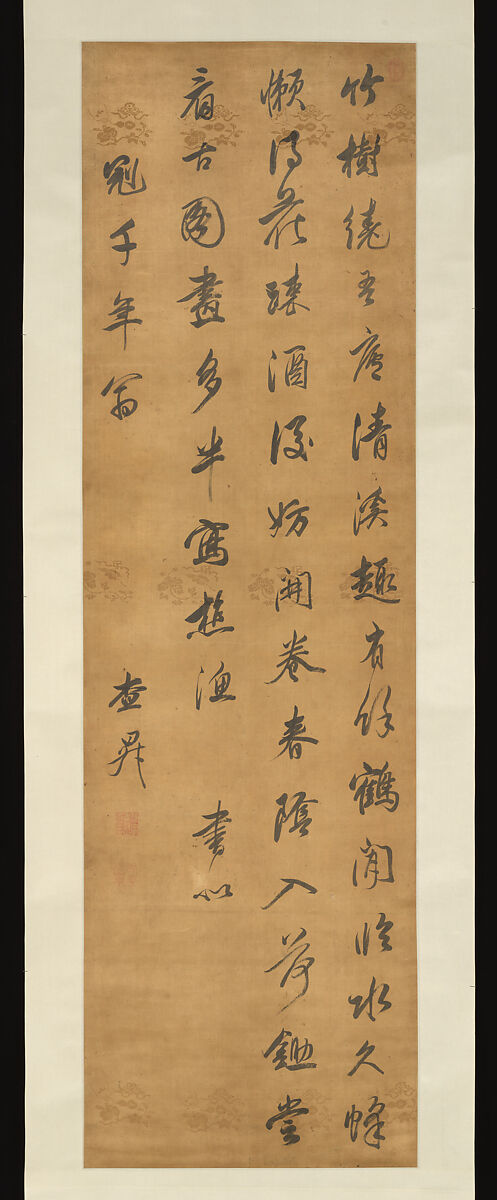 竹樹繞吾廬清溪趣有餘鶴閒臨水久蜂
懶得花疎酒後妨開卷春陰入荷鋤嘗
看古圖畫多半寫樵漁 書似
冠千年翁 查昇